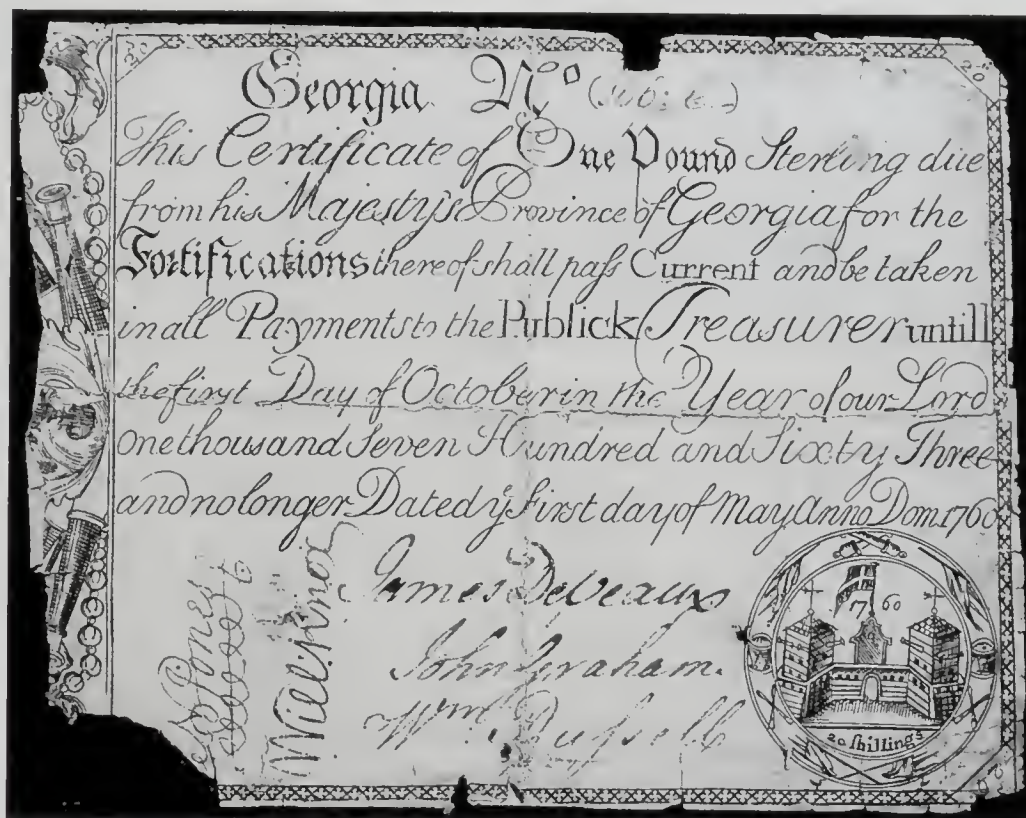 20 20
Georgia No
This Certificate of One Pound Sterling due
from his Majesty's Province of Georgia for the
Fortifications thereof shall paſs Current and be taken
in all Payments to the Publick Treasurer untill
the first Day of October in the Year of our Lord
one thousand Seven Hundred and Sixty Three
and no longer Dated ye First day of May Anno Dom 1760
James DeVeaux
John Graham
Wm. Ruſsell
Jones
Will: Knox
1760
20 ſhillings